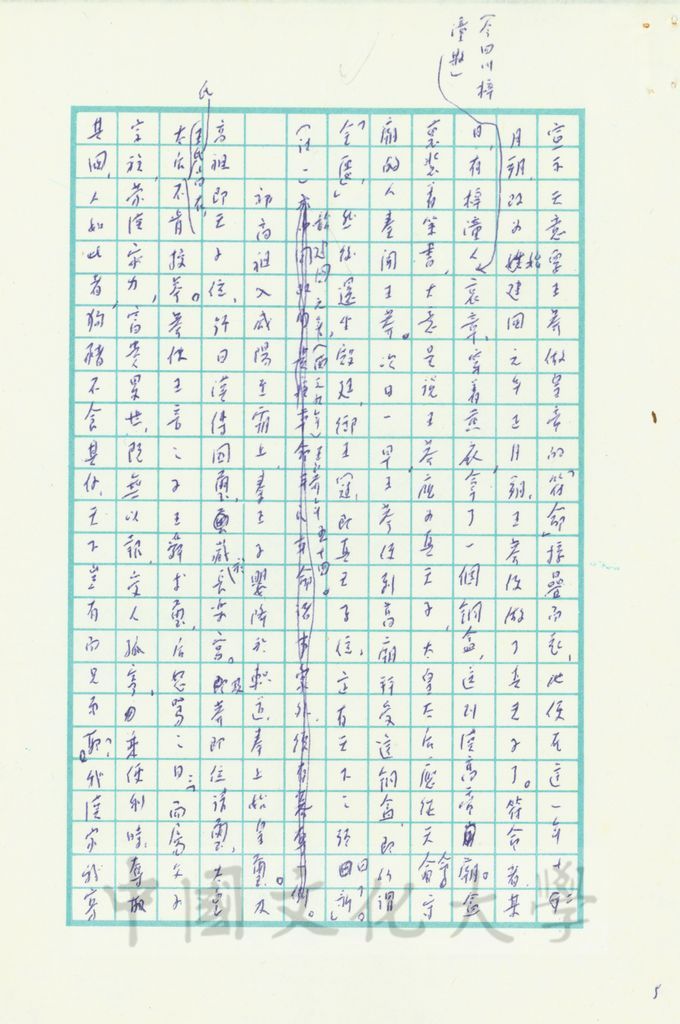 (今四川梓
潼縣)
宣示天意要王莽做皇帝的「符命」接疊而至,他便在這一年十二
月朔,改為始建國元年正月朔,王莽便做了真天子了。符命者,某
日,有梓潼人哀章,穿着黃衣,拿了一個銅盒,送到漢高帝廟。盒
裏裝着策書,大意是說王莽應為真天子,太皇太后應從天命。守
廟的人奏聞王莽。次日一早,王莽便到高廟拜受這銅盒,即所謂
「金匱」,然後還坐殿廷,御王冠,即真天子位,定有天下之號曰「新」。
始建國元年(西元九年)王莽年五十四。
初高祖入咸陽至霸上,秦王子嬰降於軹道,奉上始皇璽。及
高祖即天子位,號曰漢傳國璽,藏於長樂宮。及莽即位請璽,太皇
太后不肯授莽。莽使王音之子王舜求璽,后怒罵之曰:「而屬父子
宗族,蒙漢家力,富貴累世,既無以報,受人孤寄,乘便利時,奪取
其國,人如此者,狗豬不食其餘,天下豈有而兄弟耶?我漢家寡
中國文化大學
5